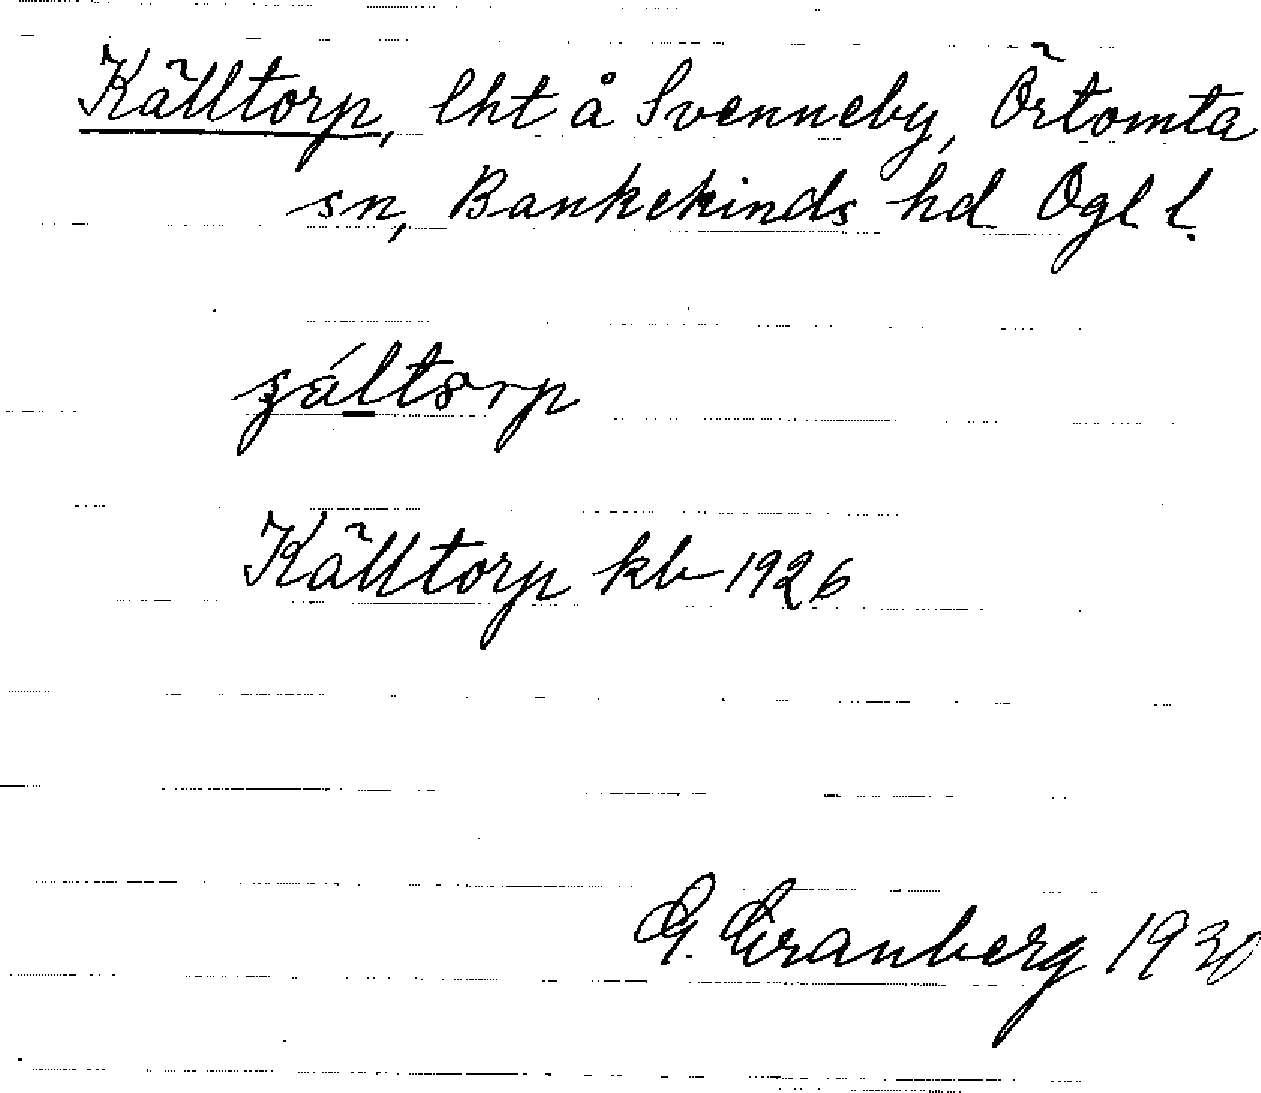 Källtorp, lht å Svenneby, Örtomta
sn, Bankekinds hd Ögl l.
Källtorp kb 1926
G. Granberg 1930